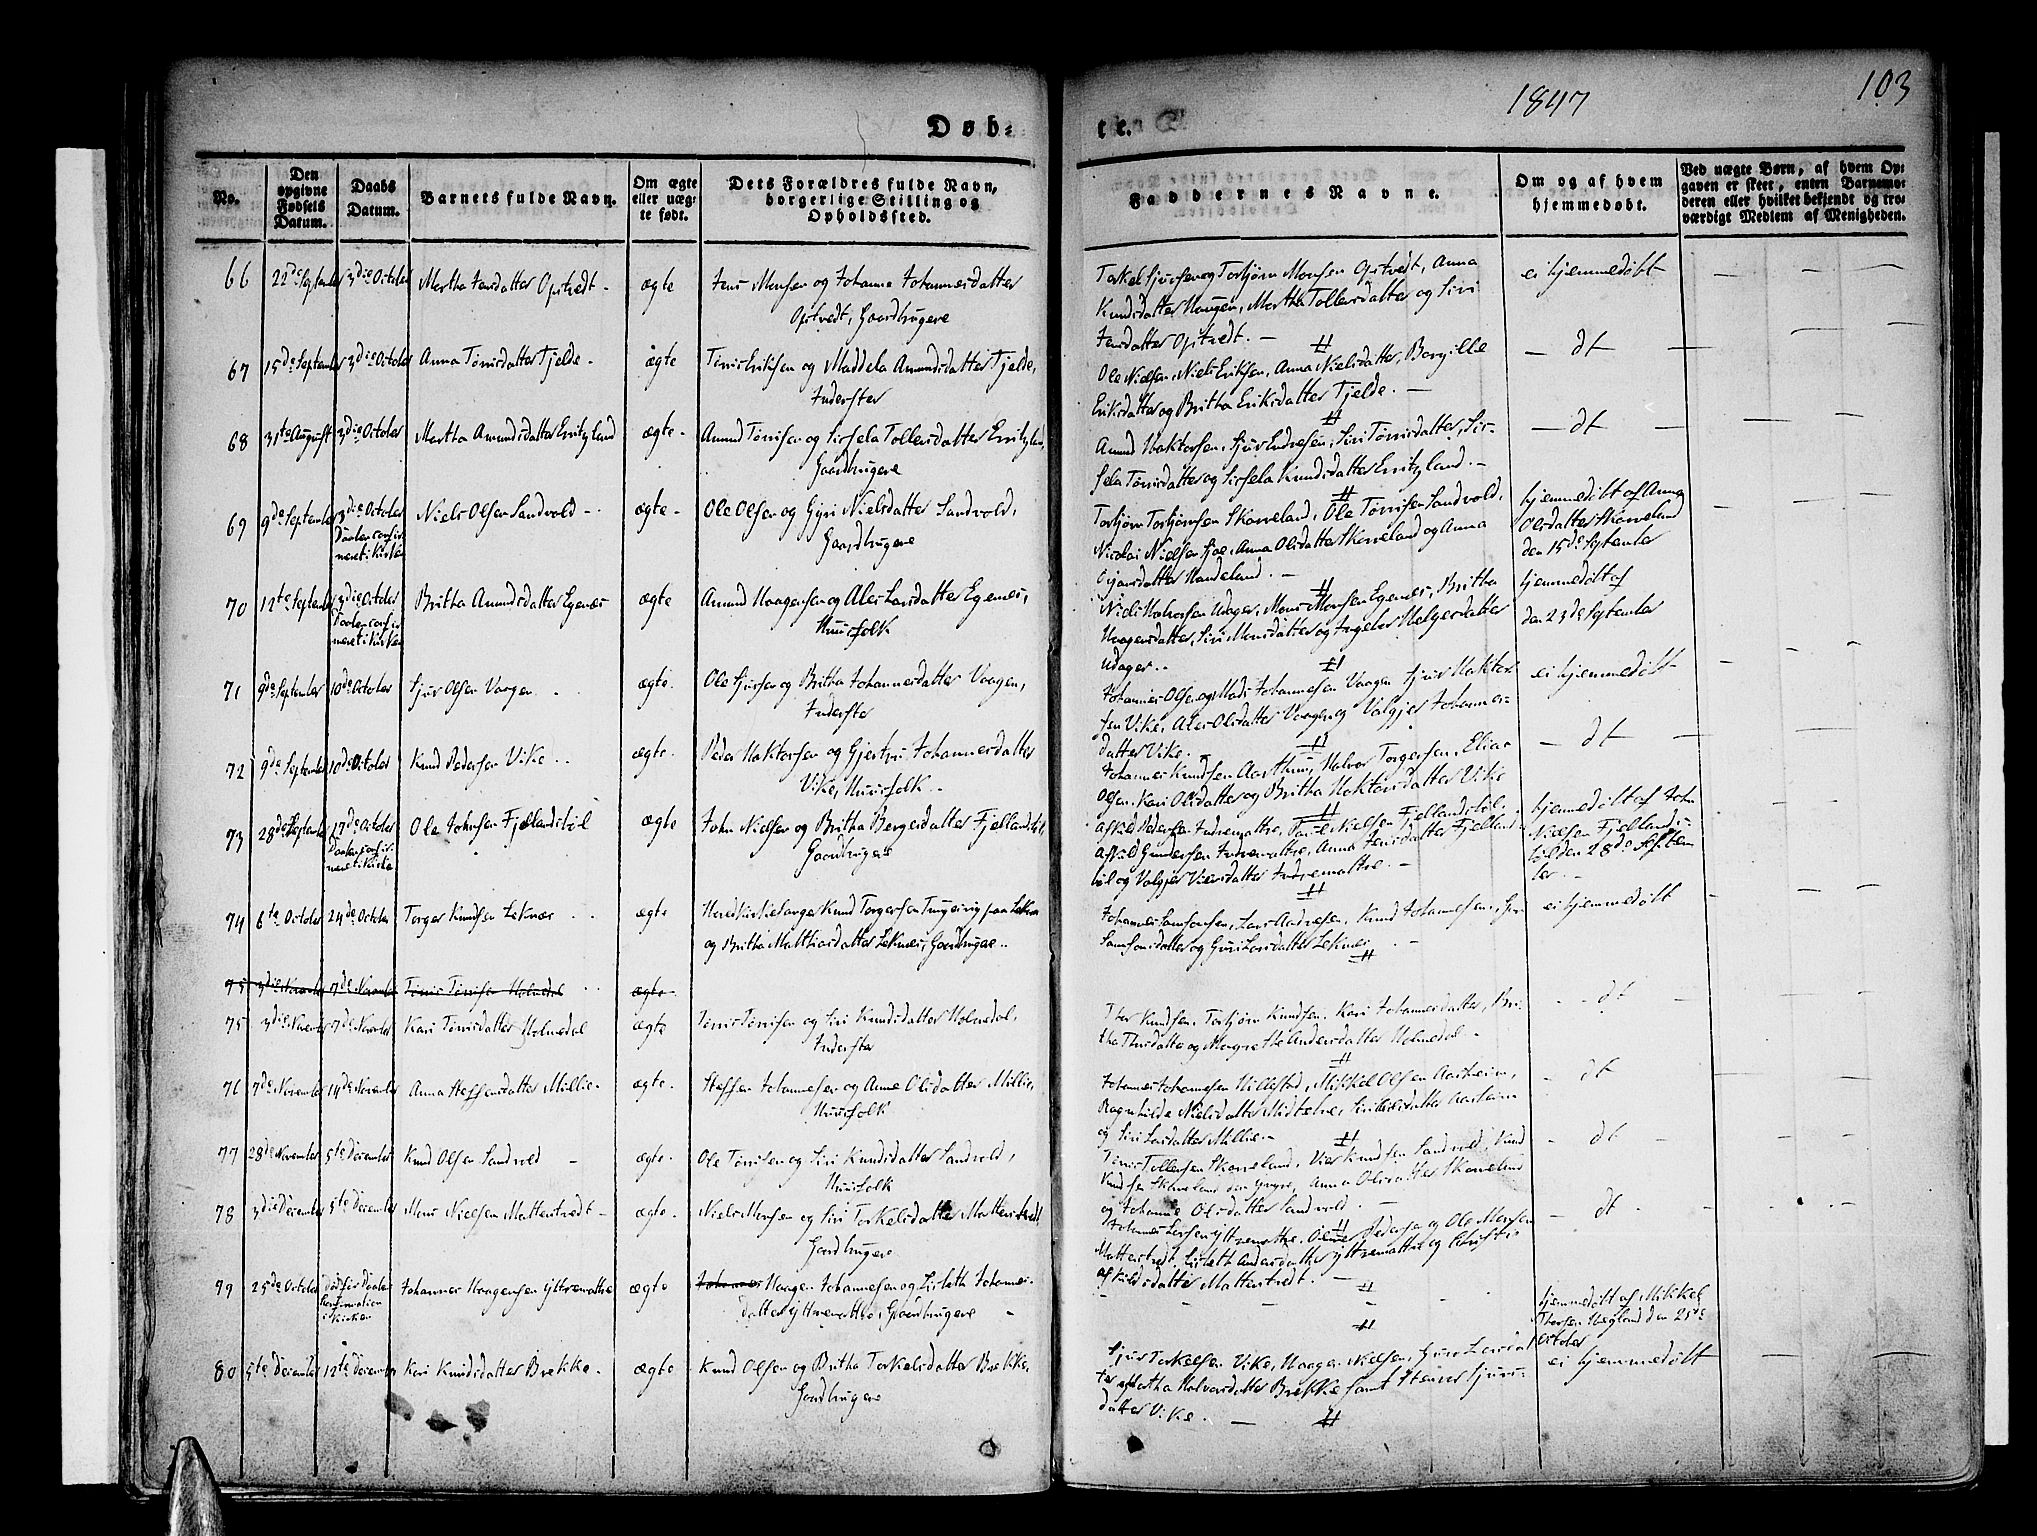 1847
103
Døb-
te.
No.
Den
opgivne
Fødsels
Datum.
Daabs
Datum.
Barnets fulde Navn.
Om ægte
eller uæg-
te født.
Dets Forældres fulde Navn,
borgerlige Stilling og
Opholdssted.
Faddernes Navne.
Om og af hvem
hjemmedøbt.
Ved uægte Børn, af hvem Op-
gaven er skeet, enten Barnemo-
deren eller hvilket bekjendt og tro-
værdigt Medlem af Menigheden.
66 22de September 3die October Martha Jensdatter Opstvedt - ægte Jens Monsen og Johanne Johannesdatter
Opstvedt, Gaardbrugere
Torkel Sjursen og Torbjørn Monsen Opstvedt, Anna
Knudsdatter Haugen, Martha Tollersdatter og Siri
Jensdatter Opstvedt. -
ei hjemmedøbt
67 15de September 3die October Anna Tørrisdatter Tjelde - ægte Tørris Eriksen og Maddela Amundsdatter Tjelde,
Inderster
Ole Nielsen, Niels Eriksen, Anna Nielsdatter, Borgille
Eriksdatter og Britha Eriksdatter Tjelde. -
- dt -
68 31te August 3die October Martha Amundsdatter Ersitzland ægte - Amund Tørrisen og Sissela Tollersdatter Ersitzland,
Gaardbrugere
Amund Haktorsen, Sjur Endresen, Siri Tørrisdatter, Sis-
sela Tørrisdatter og Sissela Knudsdatter Ersitzland. -
- dt -
69 9de September 3die October Niels Olsen Sandvold - ægte - Ole Olsen og Gyri Nielsdatter Sandvold,
Daaben confir-
meret i Kirken
Gaardbrugere
Torbjørn Torbjørnsen Skoreland, Ole Tørrisen Sandvold,
Nicolai Nielsen Anna Olsdatter Skoreland og Anna
Handeland. -
hjemmedøbt af Anna
Olsdatter Skoreland
den 15de September
70 12te September 3die October Britha Amundsdatter Egenes ægte Amund Haagensen og Ales Larsdatter Egenes,
Daaben confir-
meret i Kirken
Huusfolk
Niels Halvorsen Udager, Mons Monsen Egenes, Britha
Haagensdatter, Siri Monsdatter og Ingebor Helgesdatter
Udager. -
hjemmedøbt af
den 23de September
71 9de September 10de October Sjur Olsen Vaagen ægte. Ole Sjursen og Britha Johannesdatter Vaagen,
Inderster
Johannes Olsen og Mads Johannesen Vaagen, Sjur Haktor-
sen Vike, Ales Olsdatter Vaagen og Valgjer Johannes-
datter Vike.
ei hjemmedøbt
72 9de September 10de October Knud Pedersen Vike ægte. Peder Haktorsen og Gjertru Johannesdatter
Vike, Huusfolk
Johannes Knudsen Aarthun, Halvor Torgersen, Elias
Olsen, Kari Olsdatter og Britha Haktorsdatter Vike
- dt -
73 28de September 17de October Ole Johnsen Fjellandsbøl ægte John Nielsen og Britha Bergesdatter Fjellandsbøl,
Daaben confir-
meret i Kirken
Gaardbrugere
Afkild Pedersen Indremattre, Nielsen Fjellandsbøl,
Afkild Gundersen Indremattre, Anna Jensdatter Fjellands-
bøl og Valgjer Viersdatter Indremattre. -
hjemmedøbt af John
Nielsen Fjellands-
bøl den 28de Septem-
ber. -
74 6te October 24de October Torger Knudsen Leknæs ægte Knud Torgersen
og Britha Matthiasdatter Leknæs, Gaardbrugere
Johannes Samsonsen, Lars Andresen, Knud Johannesen,
Samsonsdatter og Guri Larsdatter Leknæs. -
ei hjemmedøbt
75 3die November 7de November Tørris Tørrisen Holmedal ægte
75 3die November 7de November Kari Tørrisdatter Holmedal ægte Tørris Tørrisen og Siri Knudsdatter Holmedal.
Inderster
Thor Knudsen, Torbjørn Knudsen, Kari Johannesdatter, Bri-
tha Thorsdatter og Magrethe Andersdatter Holmedal -
- dt -
76 7de November 14de November Anna Steffensdatter Millie - ægte. Steffen Johannesen og Anne Olsdatter Millie,
Huusfolk
Johannes Johannesen Hillestad, Mikkel Olsen Aarheim,
Ragnhilde Nielsdatter Midtæhre, Siri Aarheim
og Siri Larsdatter Millie. -
- dt
77 28de November 5te December Knud Olsen Sandvold - ægte. Ole Tørrisen og Siri Knudsdatter Sandvold,
Huusfolk
Tørris Tollersen Skoreland, Vier Knudsen Sandvold, Knud
Knudsen Skoreland den yngre, Anna Olsdatter Skoreland
og Johanne Olsdatter Sandvold. -
- dt -
78 3die December 5te December Mons Nielsen Mattestvedt - ægte. Niels Monsen og Siri Torkelsdatter Mattestvedt,
Gaardbrugere
Johannes Larsen Yttremattre, Oliver Pedersen og Ole Monsen
Mattestvedt, Lisbeth Andersdatter Yttremattre og Christi
Afkildsdatter Mattestvedt. -
- dt -
79 25de October Død før Daabens Johannes Haagensen Yttremattre ægte Johannes Haagen Johannesen og Lisbeth Johannes-
Confirmation
i Kirken
datter Yttremattre, Gaardbrugere -
hjemmedøbt af Mikkel
Thorsen Hegland den 25de
October
80 5te December 12te December Kari Knudsdatter Brekke - ægte Knud Olsen og Britha Torkelsdatter Brekke.
Gaardbrugere
Sjur Torkelsen Vike, Haagen Nielsen, Guro Larsdat-
ter og Martha Halvorsdatter Brekke samt Steener Sjurs-
datter Vike. -
ei hjemmedøbt